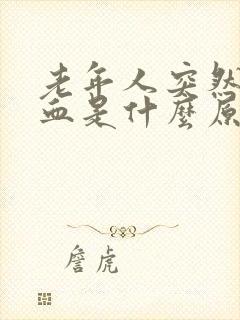 老年人突然
血是什麼原
詹虎